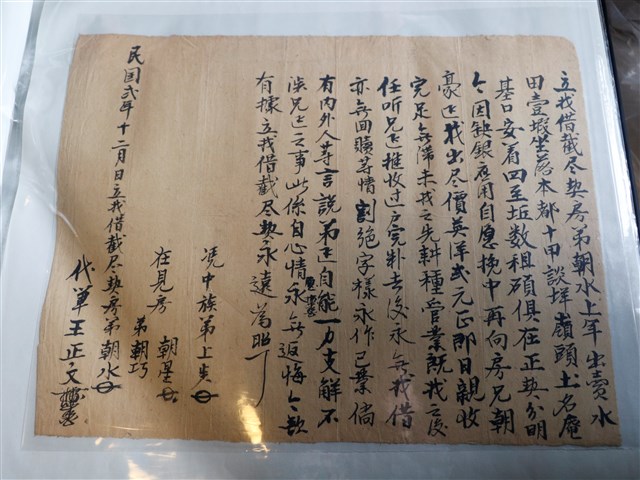 立找借截尽契房弟朝水上年出賣水
田壹塅坐落本都十甲談垟嶺頭土名庵
基口安着四至坵数租碩俱在正契分明
今因缺銀應用自愿挽中再向房兄朝
豪边找出尽價英洋弍元正即日親收
完足無滯未找之先耕種管業既找之後
任听兄边推收过户完粮去後永無找借
亦無回贖等情割絶字樣永作己業倘
有内外人等言説弟边自能一力支解不
涉兄边之事此係自心情愿永無返悔今欲
有據立找借截尽契永遠為照
憑中族弟上
在見房 朝星
弟朝巧
民国弍年十二月日立找借截尽契房弟朝水
代筆王正文